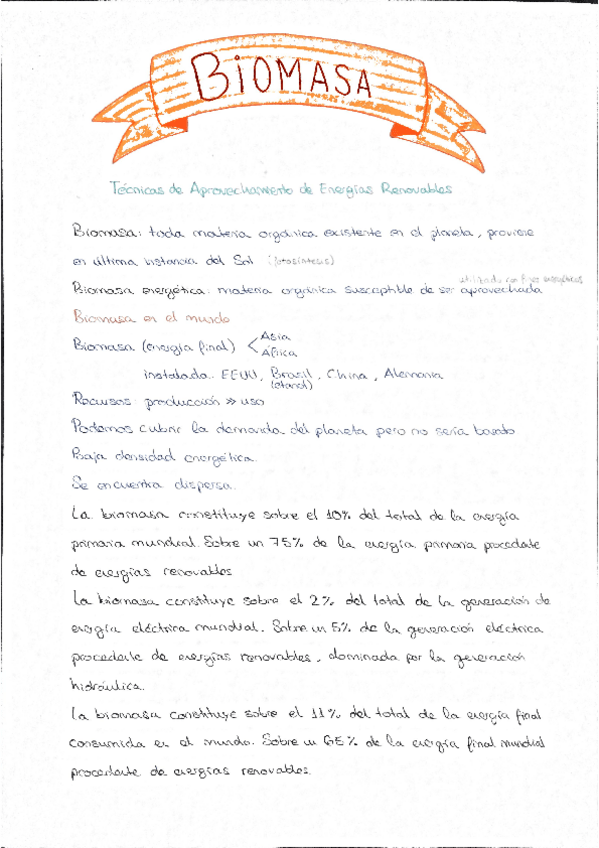 BIOMASA
Técnicas de Aprovechamiento de Energías Renovables
Biomasa: toda materia orgánica existente en el planeta, proviene
en última instancia del Sol (fotosíntesis)
utilizado con fines energéticos
Biomasa energética: materia orgánica susceptible de ser aprovechada
Biomasa en el mundo
Biomasa (energía final) < Asia
África
instalada: EEUU, Brasil, China, Alemania
(etanol)
Recursos: producción >> uso
Podemos cubrir la demanda del planeta pero no sería barato
Baja densidad energética.
Se encuentra dispersa.
La biomasa constituye sobre el 10% del total de la energía
primaria mundial. Sobre un 75% de la energía primaria procedente
de energías renovables
La biomasa constituye sobre el 2% del total de la generación de
energía eléctrica mundial. Sobre un 5% de la generación eléctrica
procedente de energías renovables, dominada por la generación
hidráulica.
La biomasa constituye sobre el 11% del total de la energía final
consumida en el mundo. Sobre un 65% de la energía final mundial
procedente de energías renovables.